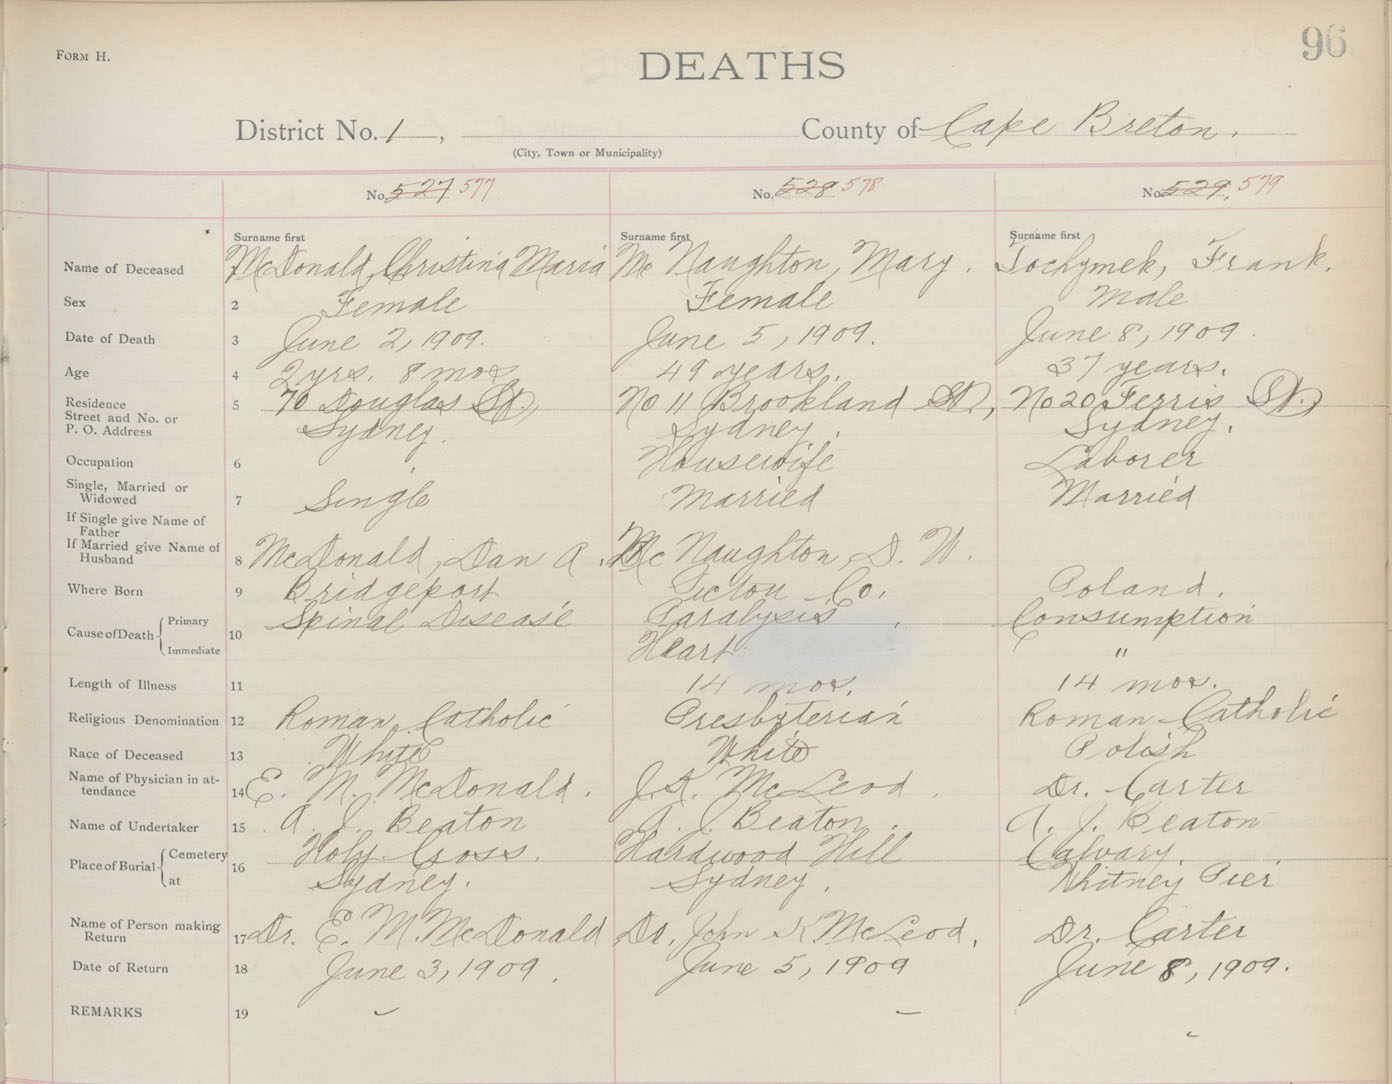 96
FORM H.
DEATHS
District No. 1, County of Cape Breton.
(City, Town or Municipality)
No. 527 577 No. 528 578 No. 529. 579
Surname first Surname first Surname first
Name of Deceased McDonald, Christina Maria Mc Naughton, Mary. Tochymek, Frank.
Sex 2 Female Female Male
Date of Death 3 June 2, 1909. June 5, 1909. June 8, 1909.
Age 4 2 yrs. 8 mos 49 years. 37 years.
Residence 5 70 Douglas St., No 11 Brookland St., No 20 Ferris St.,
Street and No. or
P. O. Address Sydney. Sydney. Sydney.
Occupation 6 Housewife Laborer
Single, Married or
Widowed 7 Single Married Married
If Single give Name of
Father
If Married give Name of
Husband 8 McDonald, Dan A. Mc Naughton, D. W.
Where Born 9 Bridgeport Pictou Co. Poland.
Cause of Death Primary 10 Spinal Disease Paralysis Consumption
Immediate Heart "
Length of Illness 11 14 mos. 14 mos.
Religious Denomination 12 Roman Catholic Presbyterian Roman Catholic
Race of Deceased 13 White White Polish
Name of Physician in at-
tendance 14 E. M. McDonald. J. K. McLeod. Dr. Carter
Name of Undertaker 15 A. J. Beaton A. J. Beaton. A. J. Beaton
Place of Burial Cemetery 16 Holy Cross. Hardwood Hill Calvary.
at Sydney. Sydney. Whitney Pier
Name of Person making
Return 17 Dr. E. M. McDonald Dr. John K McLeod. Dr. Carter
Date of Return 18 June 3, 1909. June 5, 1909 June 8, 1909.
REMARKS 19 - - -